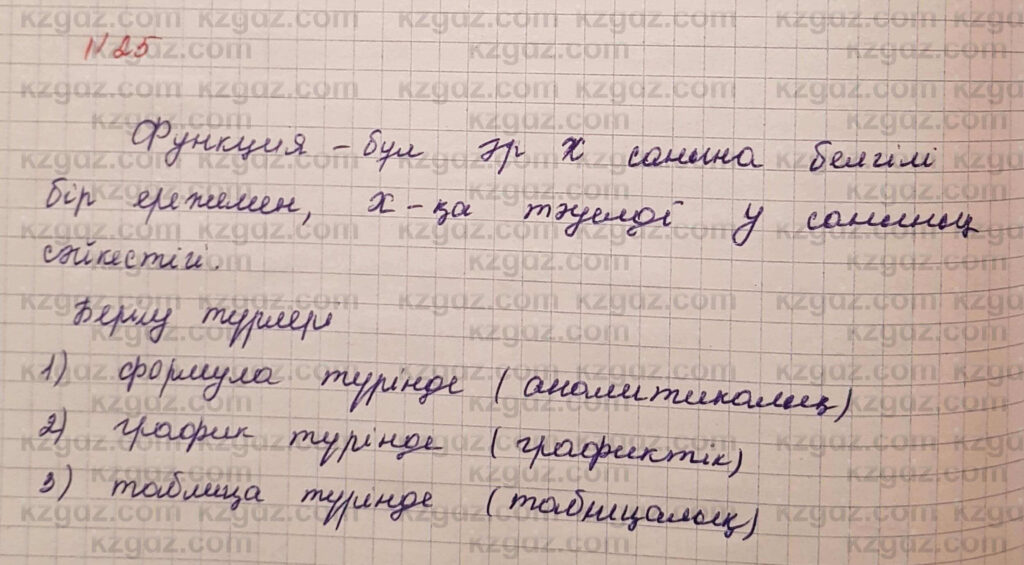 №25
Функция – бұл әр x санына белгілі
бір ережемен, x-қа тәуелді y санының
сәйкестігі.
Берілу түрлері
1) формула түрінде (аналитикалық)
2) график түрінде (графиктік)
3) таблица түрінде (таблицалық)
kzgaz.com